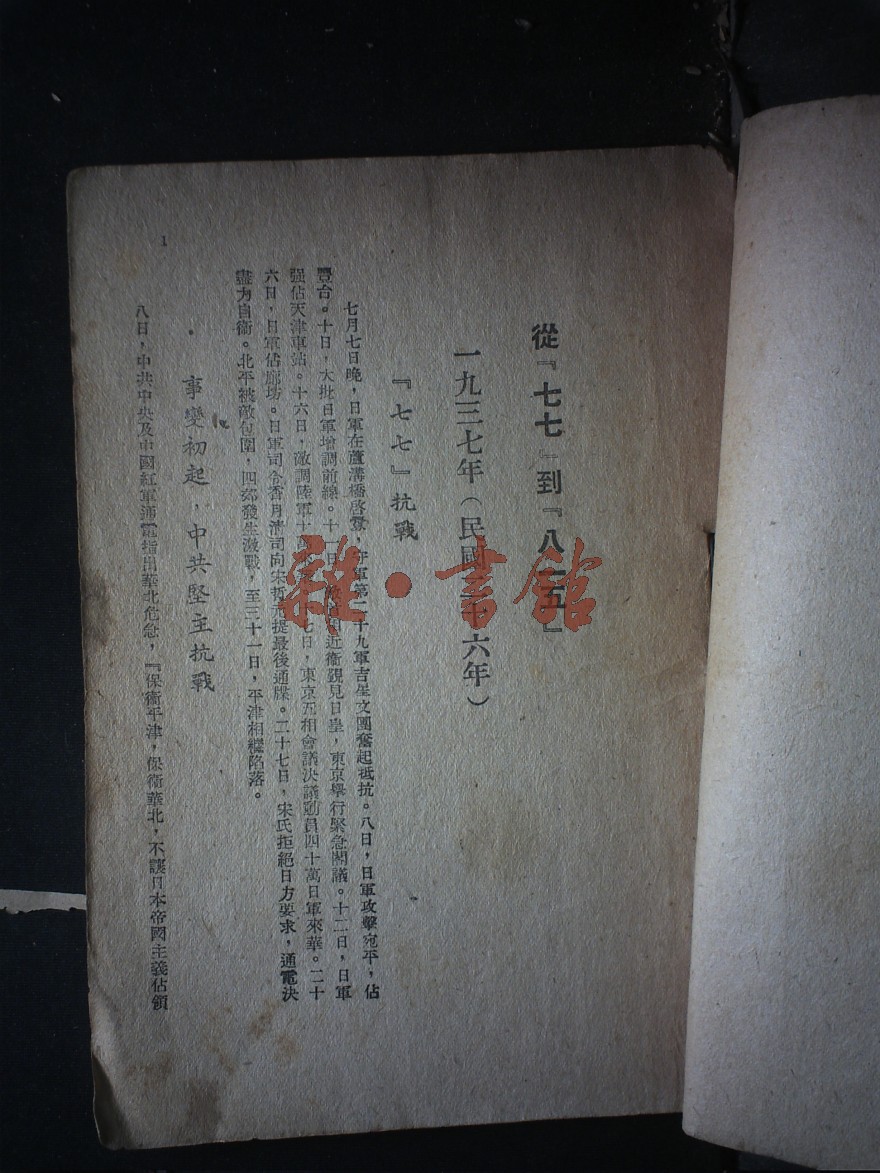 從『七七』到『八一五』
一九三七年（民國二十六年）
『七七』抗戰
七月七日晚，日軍在蘆溝橋啓釁，守軍第二十九軍吉星文團奮起抵抗。八日，日軍攻擊宛平，佔
豐台。十日，大批日軍增調前線。十一日，近衞覲見日皇，東京舉行緊急閣議。十二日，日軍
强佔天津車站。十六日，敵調陸軍十萬七日，東京五相會議決議動員四十萬日軍來華。二十
六日，日軍佔廊坊。日軍司令香月淸司向宋哲元提最後通牒。二十七日，宋氏拒絕日方要求，通電決
盡力自衞。北平被敵包圍，四郊發生激戰，至三十一日，平津相繼陷落。
事變初起，中共堅主抗戰
八日，中共中央及中國紅軍通電指出華北危急，『保衞平津，保衞華北，不讓日本帝國主義佔領
1
雜·書館